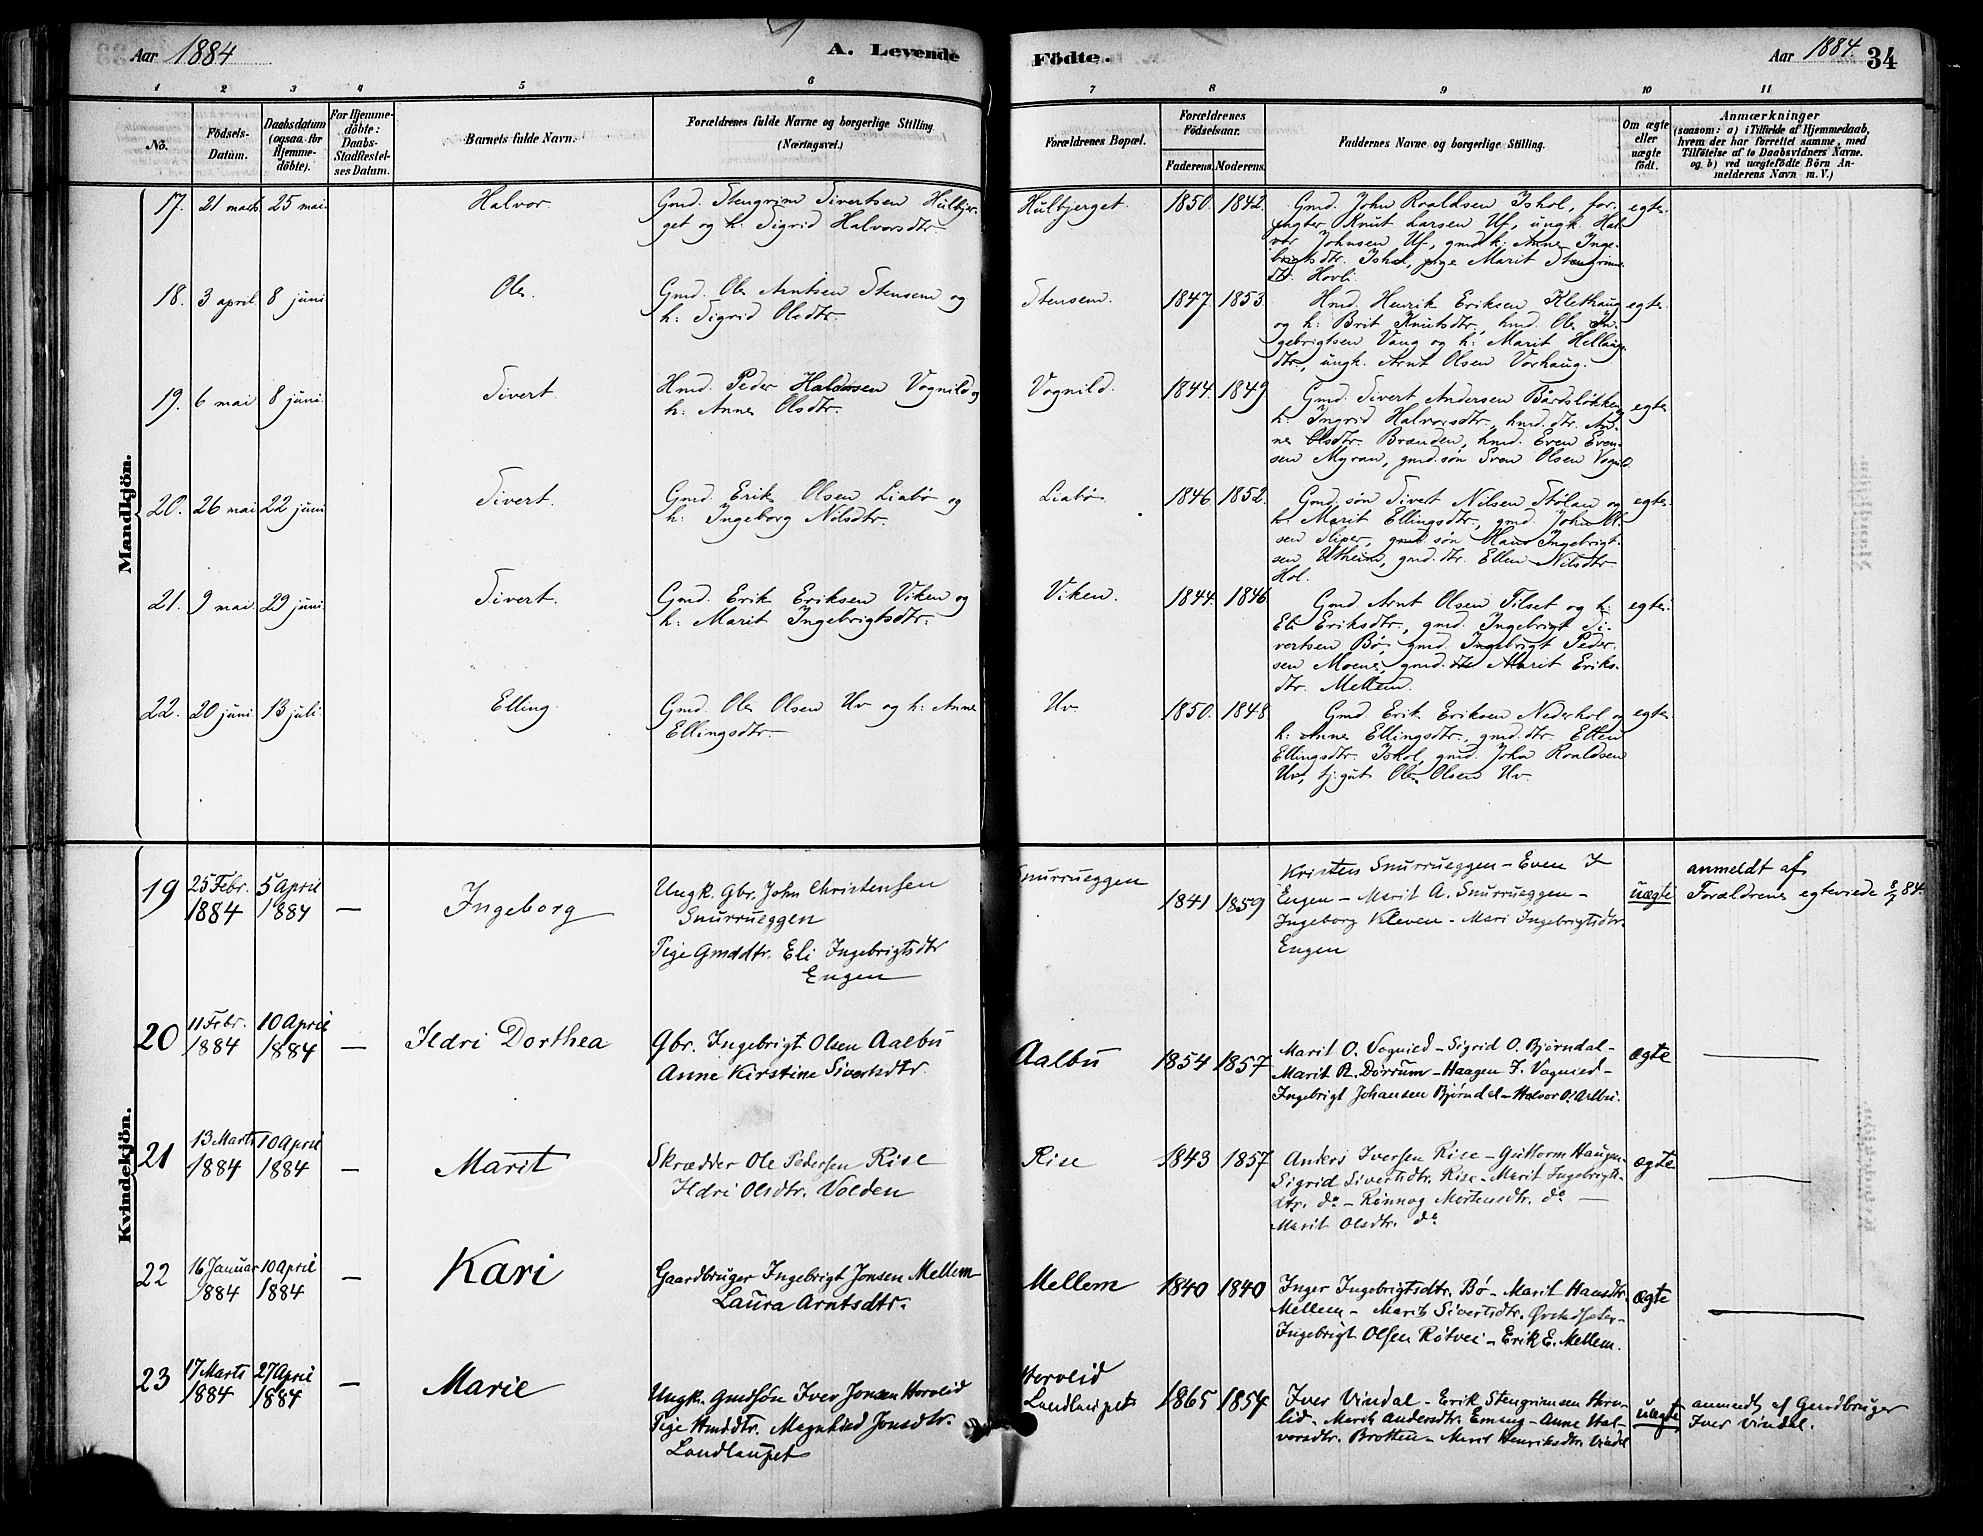 Aar 1884
A. Levende
Födte.
Aar 1884.
34
1 2 3 4 5 6 7 8 9 10 11
No.
Födsels-
Datum.
Daabsdatum
(ogsaa for
Hjemme-
döbte).
For Hjemme-
döbte:
Daabs-
Stadfæstel-
ses Datum.
Barnets fulde Navn.
Forældrenes fulde Navne og borgerlige Stilling.
(Næringsvei.)
Forældrenes Bopæl.
Forældrenes
Födselsaar.
Faderens. Moderens.
Faddernes Navne og borgerlige Stilling.
Om ægte
eller
uægte
födt.
Anmærkninger
(saasom: a) i Tilfælde af Hjemmedaab,
hvem der har forrettet samme, med
Tilföielse af to Daabsvidners Navne.
og b) ved uægtefödte Börn An-
melderens Navn m. V.)
Mandkjön.
17. 21 marts 25 mai. Halvor
Gmd. Stengrim Sivertsen Hulbjer-
get og h: Sigrid Halvorsdtr.
Hulbjerget. 1850. 1842.
Gmd. John Roaldsen Ishol, for-
pagter Knut Larsen Uf, ungk. Hal
vor Johnsen Uf, gmdk: Anne Inge-
brigtsdtr. Ishol, pige Marit Stengrims
dtr. Hovli.
egte.
18. 3 april 8 juni Ole.
Gmd. Ole Arntsen Stensem og
h: Sigrid Olsdtr.
Stensem. 1847. 1853.
Hmd. Henrik Eriksen Klethaug
og h: Brit Knutsdtr., hmd. Ole In-
gebrigtsen Vang og h: Marit Hellaugs
dtr., ungk. Arnt Olsen Vorhaug.
egte.
19. 6 mai 8 juni. Sivert.
Hmd. Peder Haldosen Vognild og
h: Anne Olsdtr.
Vognild. 1844. 1849
Gmd. Sivert Andersen Bårdsløkken
h: Ingrid Halvorsdtr., hmd. dtr. An-
ne Olsdtr. Brænden, hmd. Even Even-
sen Myran, gmd.søn Sven Olsen Vognild
egte
20. 26 mai 22 juni Sivert.
Gmd. Erik Olsen Liabø og
h: Ingeborg Nilsdtr.
Liabø. 1846. 1852.
Gmd. søn Sivert Nilsen Stølan og
h: Marit Ellingsdtr., gmd. John Ol-
sen Sliper, gmd søn Hans Ingebrigt-
sen Utheim, gmd. dtr. Ellen Nilsdtr
Hol.
egte.
21. 9 mai. 29 juni. Sivert.
Gmd. Erik Eriksen Viken og
h: Marit Ingebrigtsdtr.
Viken. 1844. 1846
Gmd Arnt Olsen Tilset og h:
Eli Eriksdtr., gmd. Ingebrigt Si-
vertsen Bø, gmd. Ingebrigt Peder-
sen Moene, gmd. dtr Marit Eriks-
dtr. Mellem.
egte.
22. 20 juni 13 juli. Elling.
Gmd. Ole Olsen Uv og h: Anne
Ellingsdtr.
Uv 1850. 1848.
Gmd Erik Eriksen Nederhol og
h. Anne Ellingsdtr., gmd. dtr. Ellen
Ellingsdtr. Ishol, gmd. John Roaldsen
Uv, tj.gut Ole Olsen Uv.
egte.
Kvindekjön.
19 25 Febr. 1884 5 April 1884 — Ingeborg
Ungk. Gbr. John Christensen
Snurrueggen
Pige Gmddtr. Eli Ingebrigtsdtr
Engen
Snurrueggen 1841 1859
Kristen Snurrueggen – Even J
Engen – Marit A. Snurrueggen –
Ingeborg Kleven – Mari Ingebrigtsdtr.
Engen
uægte
anmeldt af
Forældrene egteviede 8/7 84.
20 11 Febr. 1884 10 April 1884 — Ildri Dorthea
Gbr. Ingebrigt Olsen Aalbu
Anne Kirstine Sivertsdtr
Aalbu 1854 1857
Marit O. Vognied – Sigrid O. Bjørndal –
Marit R. Dørrum – Haagen J. Vognied –
Ingebrigt Johansen Bjørndal – Halvor O. Aalbu.
ægte —
21 13 Marts 1884 10 April 1884 — Marit
Skrædder Ole Pedersen Rise
Ildri Olsdtr. Volden
Rise 1843 1857
Ankers Iversen Rise – Guttorm Haugen –
Sigrid Sivertsdtr. Rise – Marit Ingebrigts-
dtr. do – Rønnog Mortensdtr. do –
Marit Olsdtr. do
ægte —
22 16 Januar 1884 10 April 1884 — Kari
Gaardbruger Ingebrigt Jonsen Mellem
Laura Arntsdtr.
Mellem 1840 1840
Inger Ingebrigtsdtr. Bø – Marit Hansdtr.
Mellem – Marit Sivertsdtr. Ørkehsæter –
Ingebrigt Olsen Røtvei – Erik E. Mellem.
ægte —
23 17 Marts 1884 27 April 1884 — Marie
Ungk. Gmdsøn Iver Jonsen Horvlid
Pige Hmddtr. Magnhild Jonsdtr.
Landlaupet
Horvlid
Landlaupet 1865 1854
Iver Vindal – Erik Stengrimsen Horv-
lid – Marit Andersdtr. Eming – Anne Hal-
vorsdtr. Brotten – Marit Henriksdtr. Vindal
uægte
anmeldt af Gaardbruger
Iver Vindal.